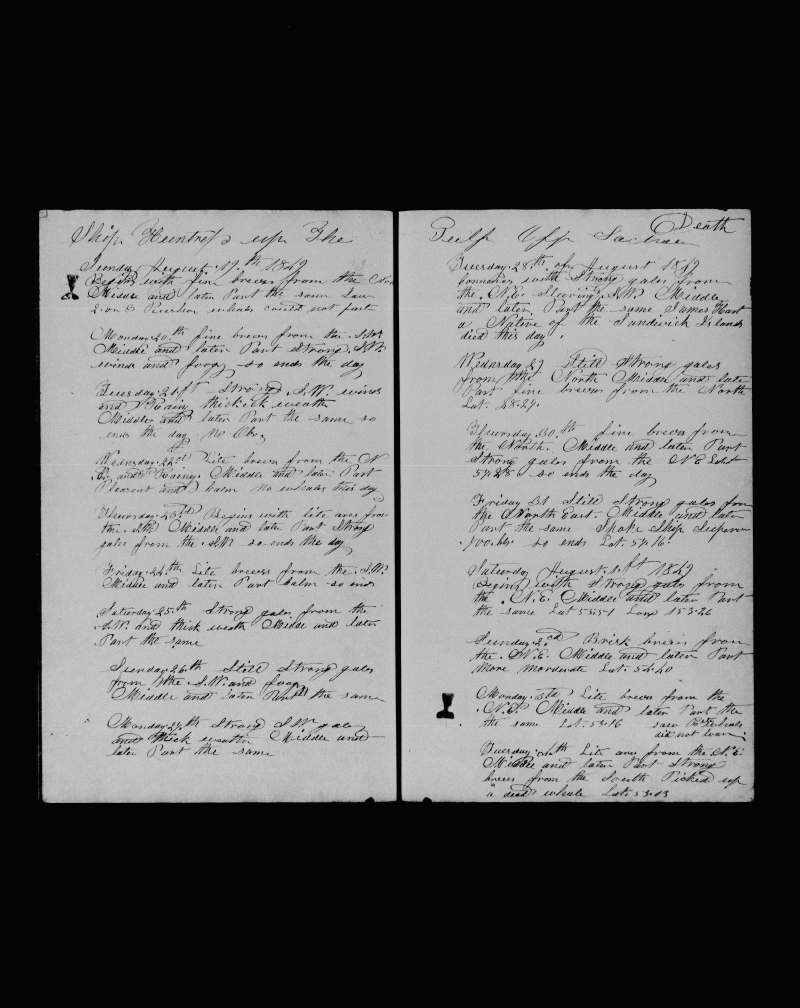 Ship Huntress up The
Sunday August 19th 1849
Begins with fin breses from the No
Middle and later Part the same Saw
2 or 3 whales could not fast
Monday 20th fine breses from the S.W.
Middle and later Part Strong S.W.
winds and foog so ends the day
Tuesday 21st Strong S.W. winds
and Rainy thickick weath
Middle and later Part the same so
ends the day No Obs
Wednsday 22st Lite breses from the N
E. and Rainy Middle and later Part
Plearent and calm No whales this day
Thursday 23rd Begins with lite ares from
the S.W. Middle and later Part Strong
gales from the S.W. so ends the day
Friday 24th Lite breses from the S.W.
Middle and later Part calm so ends
Saturday 25th Strong gales from the
S.W. and thick weath Middle and later
Part the same
Sunday 26th Still Strong gales
from the S.W. and foog
Middle and later Part the same
Monday 27th Strong S.W. gales
and thick weath Middle and
later Part the same
Death
Gulf Off
Tuesday 28th of August 1849
Comences with Strong gales from
the N.E. Stering S.W. Middle
and later Part the same James Hart
a Native of the Sandwich Islands
died this day
Wednsday 29 Still Strong gales
from the North Middle and later
Part fine breses from the North
Lat. 58.27
Thursday 30th fine breses from
the North. Middle and later Part
Strong gales from the N E Lat
57.28 so ends the day
Friday 31 Still Strong gales from
the North East. Middle and later
Part the same Spoke Ship Superior
700 bbs. so ends Lat. 57.16
Saturday August 1st 1849
Begins with Strong gales from
the N.E. Middle and later Part
the same Lat 55.51 Long 153.26
Sunday 2nd Brisk breses from
the N.E. Middle and later Part
More Morderate Lat. 54.40
Monday 3rd Lite breses from the
N.E. Middle and later Part the
the same Lat. 53.16 saw
did not lower
Tuesday 4th Lite ares from the N.E.
Middle and later Part Strong
breses from the South Picked up
a dead whale Lat. 53.03